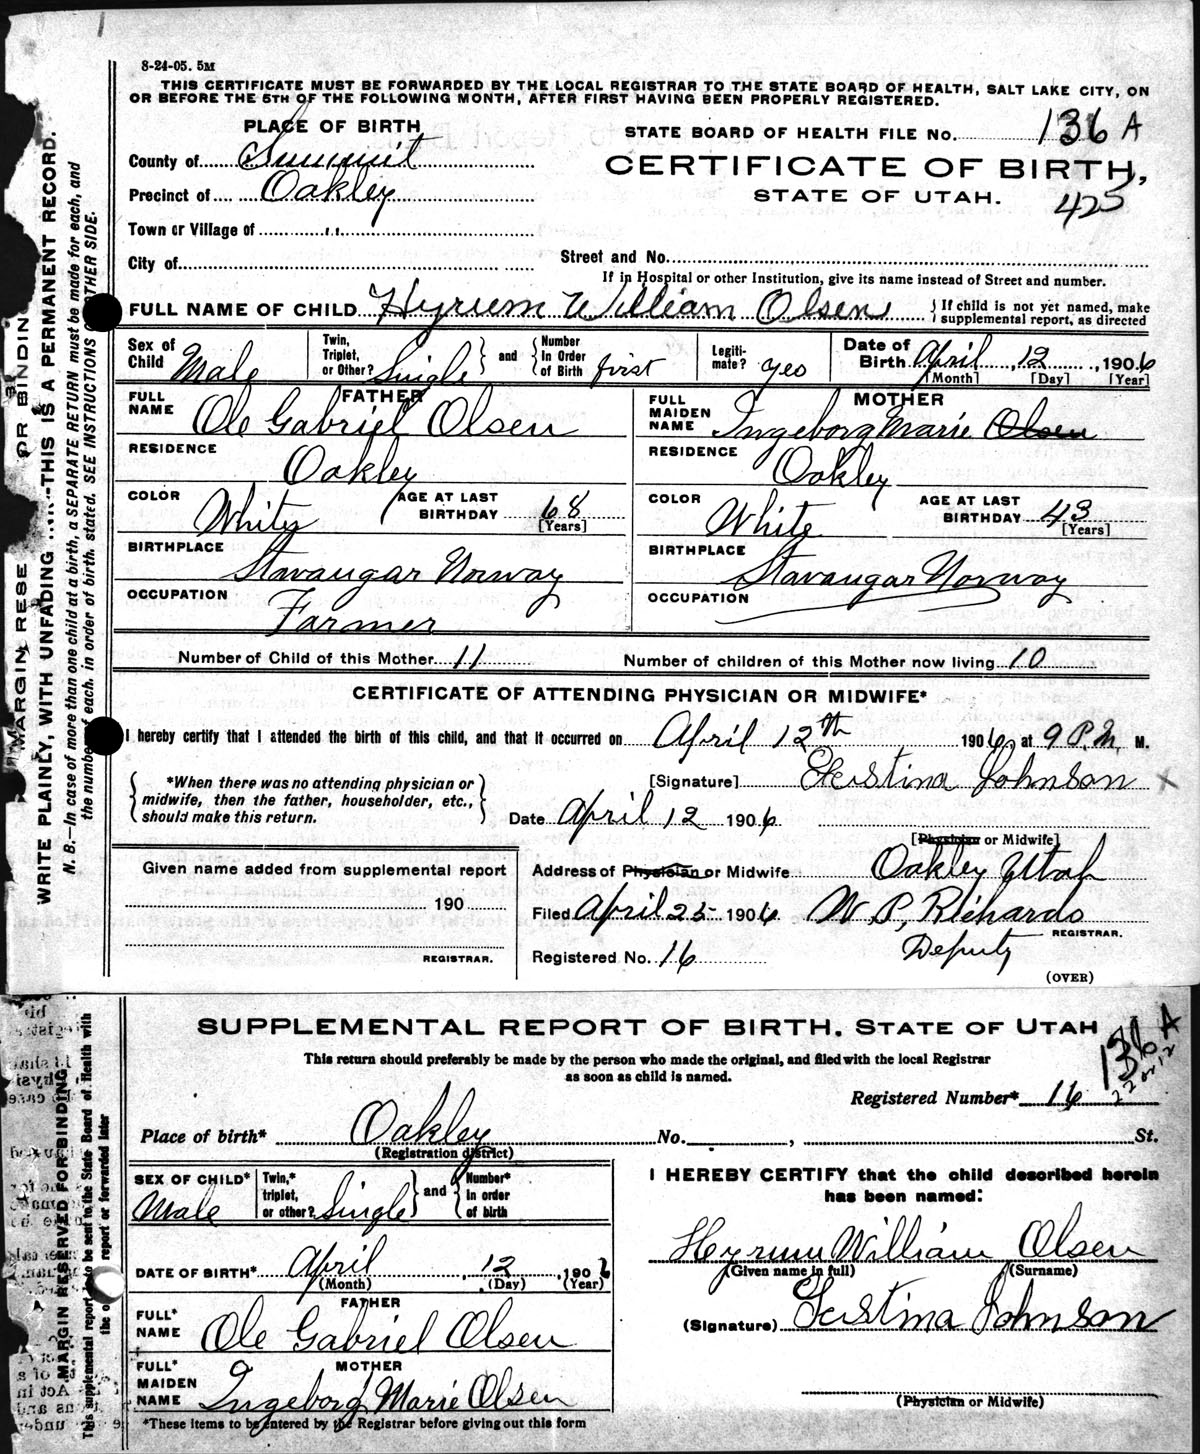 8-24-05. 5M
THIS CERTIFICATE MUST BE FORWARDED BY THE LOCAL REGISTRAR TO THE STATE BOARD OF HEALTH, SALT LAKE CITY, ON
OR BEFORE THE 5TH OF THE FOLLOWING MONTH, AFTER FIRST HAVING BEEN PROPERLY REGISTERED.
PLACE OF BIRTH
STATE BOARD OF HEALTH FILE No. 136 A
County of Summit
CERTIFICATE OF BIRTH,
Precinct of Oakley
STATE OF UTAH.
425
Town or Village of ,,
City of
Street and No.
If in Hospital or other Institution, give its name instead of Street and number.
FULL NAME OF CHILD Hyrum William Olsen
If child is not yet named, make
supplemental report, as directed
Sex of Child Male
Twin, Triplet, or Other? Single
and
Number In Order of Birth first
Legitimate? yes
Date of Birth April 12, 1906
[Month] [Day] [Year]
FATHER
FULL NAME Ole Gabriel Olsen
RESIDENCE Oakley
COLOR White
AGE AT LAST BIRTHDAY 68
[Years]
BIRTHPLACE Stavangar Norway
OCCUPATION Farmer
MOTHER
FULL MAIDEN NAME Ingeborg Marie Olsen
RESIDENCE Oakley
COLOR White
AGE AT LAST BIRTHDAY 43
[Years]
BIRTHPLACE Stavangar Norway
OCCUPATION
Number of Child of this Mother 11
Number of children of this Mother now living 10
CERTIFICATE OF ATTENDING PHYSICIAN OR MIDWIFE*
I hereby certify that I attended the birth of this child, and that it occurred on April 12th 1906, at 9 P.M. M.
*When there was no attending physician or
midwife, then the father, householder, etc.,
should make this return.
[Signature] Johnson X
Date April 12 1906
[Physician or Midwife]
Given name added from supplemental report
190
REGISTRAR.
Address of Physician or Midwife Oakley Utah
Filed April 25 1906 W. P. Richards
REGISTRAR.
Deputy
Registered No. 16
(OVER)
WRITE PLAINLY, WITH UNFADING THIS IS A PERMANENT RECORD.
N. B.—In case of more than one child at a birth, a SEPARATE RETURN must be made for each, and
the number of each, in order of birth, stated. SEE INSTRUCTIONS OTHER SIDE.
SUPPLEMENTAL REPORT OF BIRTH. STATE OF UTAH
136 A
This return should preferably be made by the person who made the original, and filed with the local Registrar
as soon as child is named.
Registered Number* 16
Place of birth* Oakley No. , St.
(Registration district)
SEX OF CHILD* Male
Twin,* triplet, or other? Single
and
Number* In order of birth
DATE OF BIRTH* April 12, 1906
(Month) (Day) (Year)
FATHER
FULL* NAME Ole Gabriel Olsen
MOTHER
FULL* MAIDEN NAME Ingeborg Marie Olsen
*These items to be entered by the Registrar before giving out this form
I HEREBY CERTIFY that the child described herein
has been named:
Hyrum William Olsen
(Given name in full) (Surname)
(Signature) Johnson
(Physician or Midwife)
MARGIN RESERVED FOR BINDING.